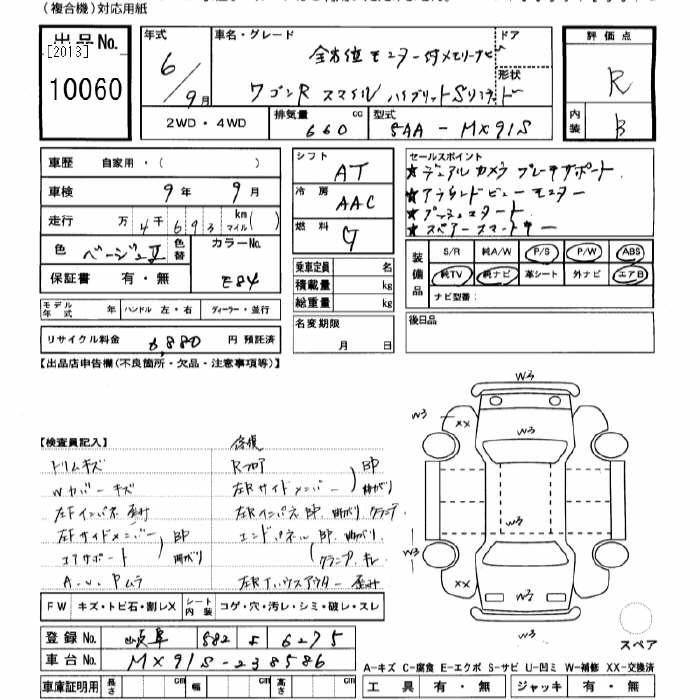 (複合機)対応用紙
出品No. [2013] 10060
年式 6/9月
車名・グレード 全方位モニター付メモリーナビ
ワゴンR スマイル ハイブリッドSリミテッド
ドア
形状
2WD・4WD 排気量 660 cc 型式 5AA-MX91S
評価点 R
内装 B
車歴 自家用・( )
車検 9年 9月
走行 万 4千 693 km マイル ( )
色 ベージュII 色替 カラーNo. E84
保証書 有・無
モデル年式 年 ハンドル 左・右 ディーラー・並行
リサイクル料金 6,880 円 預託済
シフト AT
冷房 AAC
燃料 G
乗車定員 名
積載量 kg
総重量 kg
名変期限 月 日
セールスポイント
★デュアルカメラブレーキサポート
★アラウンドビューモニター
★プッシュスタート
★スペアースマートキー
装備品 S/R 純A/W P/S P/W ABS
純TV 純ナビ 革シート 外ナビ エアB
ナビ型番:
後日品
【出品店申告欄(不良箇所・欠品・注意事項等)】
【検査員記入】 修復
トリムキズ Rフロア
Wカバーキズ 左Rサイドメンバー BP 曲がり
左Fインパネ 歪み 左Rインパネ BP 曲がり クランプ
左Fサイドメンバー エンドパネル BP 曲がり
コアサポート BP 曲がり クランプ キレ
A.W. Pムラ 左Rタイヤハウスアウター 歪み
W3
W3 XX
W3
W3
XX W2
W3
スペア
FW キズ・トビ石・割レX シート内装 コゲ・穴・汚レ・シミ・破レ・スレ
登録No. 岐阜 582 よ 6275
車台No. MX91S-238586
A-キズ C-腐食 E-エクボ S-サビ U-凹ミ W-補修 XX-交換済
車庫証明用 長さ cm 幅 cm 高さ cm
工具 有・無 ジャッキ 有・無